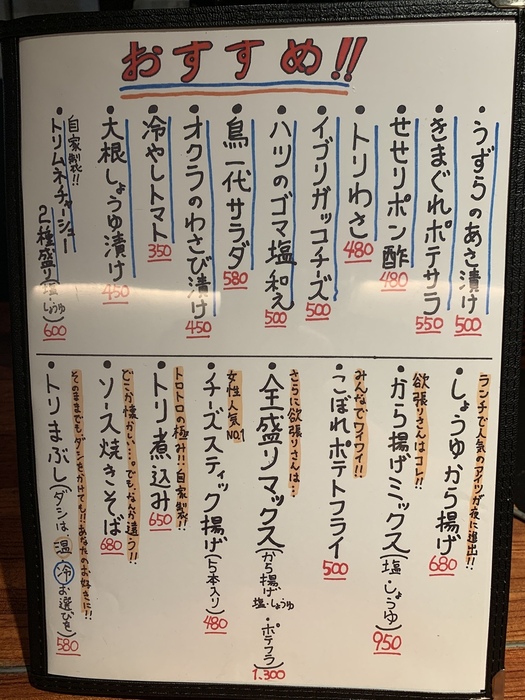 おすすめ!!
うずらのあさ漬け 500
きまぐれポテサラ 550
せせりポン酢 480
トリわさ 480
イブリガッコチーズ 500
ハツのゴマ塩和え 500
鳥一代サラダ 580
オクラのわさび漬け 450
冷やしトマト 350
大根しょうゆ漬け 450
自家製!!
トリムネチャーシュー
2種盛り しょうゆ) 600
ランチで人気のアイツが夜に進出!!
しょうゆから揚げ 680
欲張りさんはコレ!!
から揚げミックス(塩・しょうゆ) 950
みんなでワイワイ!!
こぼれポテトフライ 500
さらに欲張りさんは…
全盛りマックス(から揚げ 塩・しょうゆ・ポテフラ) 1.300
女性人気No.1
チーズスティック揚げ(5本入り) 480
トロトロの極み!!自家製!!
トリ煮込み 650
どこか懐かしい…。でも、なんか違う!!
ソース焼きそば 680
そのままでも、ダシをかけても!!あなたのお好きに!!
トリまぶし(ダシは温 冷お選びを) 580